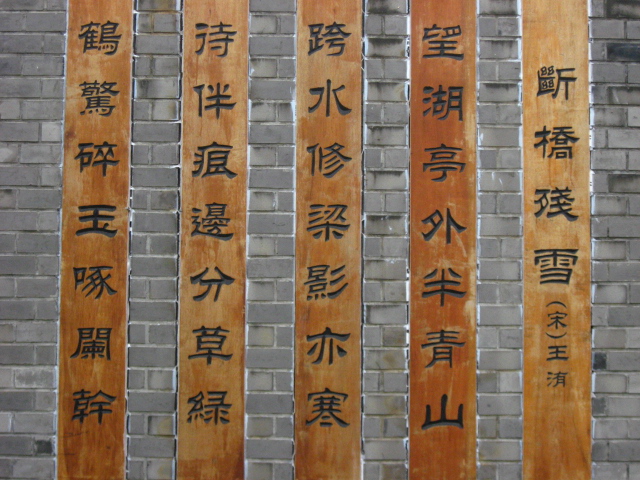 斷橋殘雪(宋)王洧
望湖亭外半青山
跨水修梁影亦寒
待伴痕邊分草綠
鶴驚碎玉啄闌幹